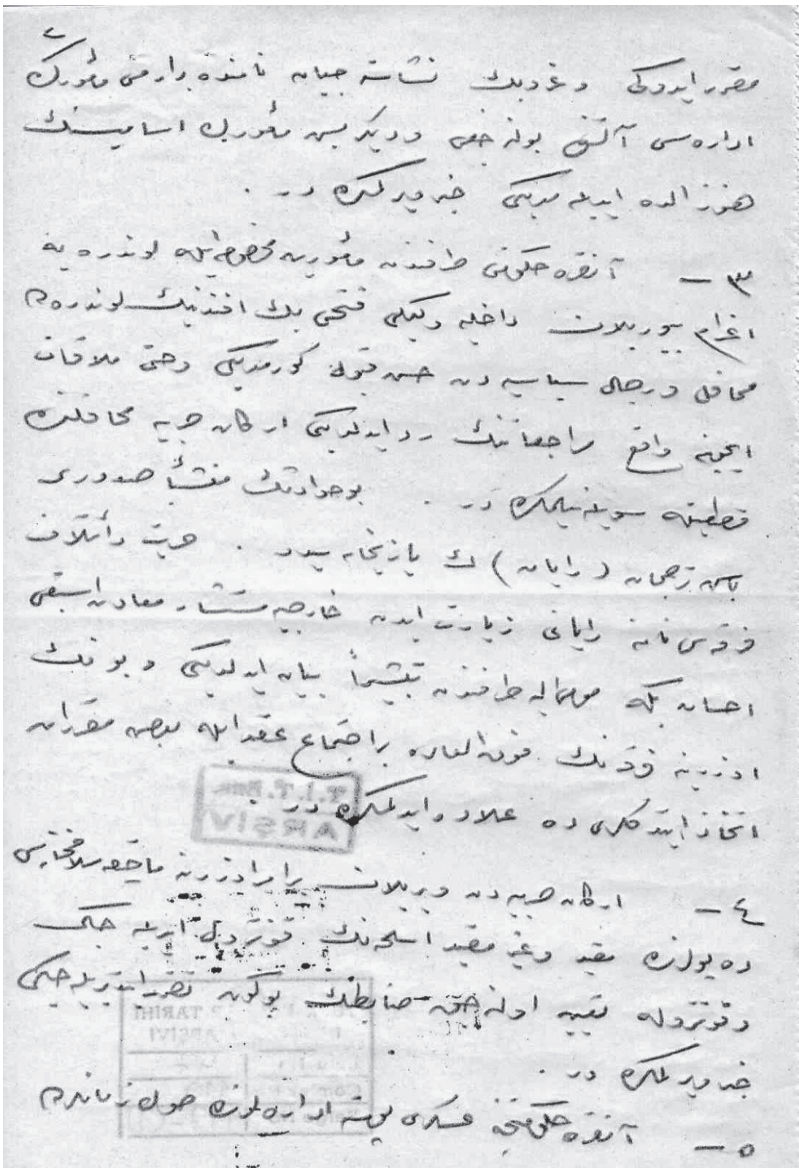 ٢
مقرر ايدوكى وغروبك نشأت جيان نامنده بر ارمنى مأمورك
اداره سى آلتنده بولنه جغى وديكر بش مأمورك اساميسنك
هنوز الده ايديله مديكى خبر ويرلمكده در .
٣ — آنقره حكومتى طرفندن مأموريت مخصوصه ايله لوندره يه
اعزام بيوريلان داخليه وكيلى فتحى بك افندينك لوندره ده
محافل ورجال سياسيه دن حسن قبول كورمديكى وحتى ملاقات
ايچين واقع مراجعاتنك رد ايدلديكى اركان حربيه محافلنده
قطعيتله سويلنيلمكده در . بو حوادثك منشأ صدورى
باش ترجمان (رايان) ك يازيخانه سيدر . حريت وائتلاف
فرقه سى نامنه رايانى زيارت ايدن خارجيه مستشار معاون اسبقى
احسان بكه مومى اليه طرفندن تبشيراً بيان ايدلديكى وبونك
اوزرينه فرقه نك فوق العاده بر اجتماع عقد ايله بعض مقررات
اتخاذ ايتدكلرى ده علاوه ايدلمكده در .
T.I.T.Enst.
ARŞİV
٤ — اركان حربيه دن ويريلان بر امر اوزرينه
ده پولرده مقيد وغير مقيد اسلحه نك قونترول ايديله جكى
وقونتروله تعيين اولنه جق ضابطك بوكون تقرر ايتديريله جكى
خبر ويرلمكده در .
TARİHİ
ARŞİVİ
٥ — آنقره حكومتنجه عسكرى پوسته اداره لرنده صوك زمانده